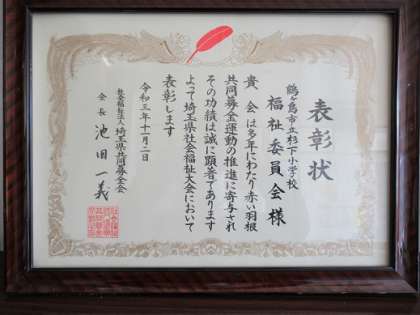 表彰状
鶴ヶ島市立杉下小学校
福祉委員会様
貴会は多年にわたり赤い羽根
共同募金運動の推進に寄与され
その功績は誠に顕著であります
よって埼玉県社会福祉大会において
表彰します
令和三年十一月二日
社会福祉法人 埼玉県共同募金会
会長 池田一義